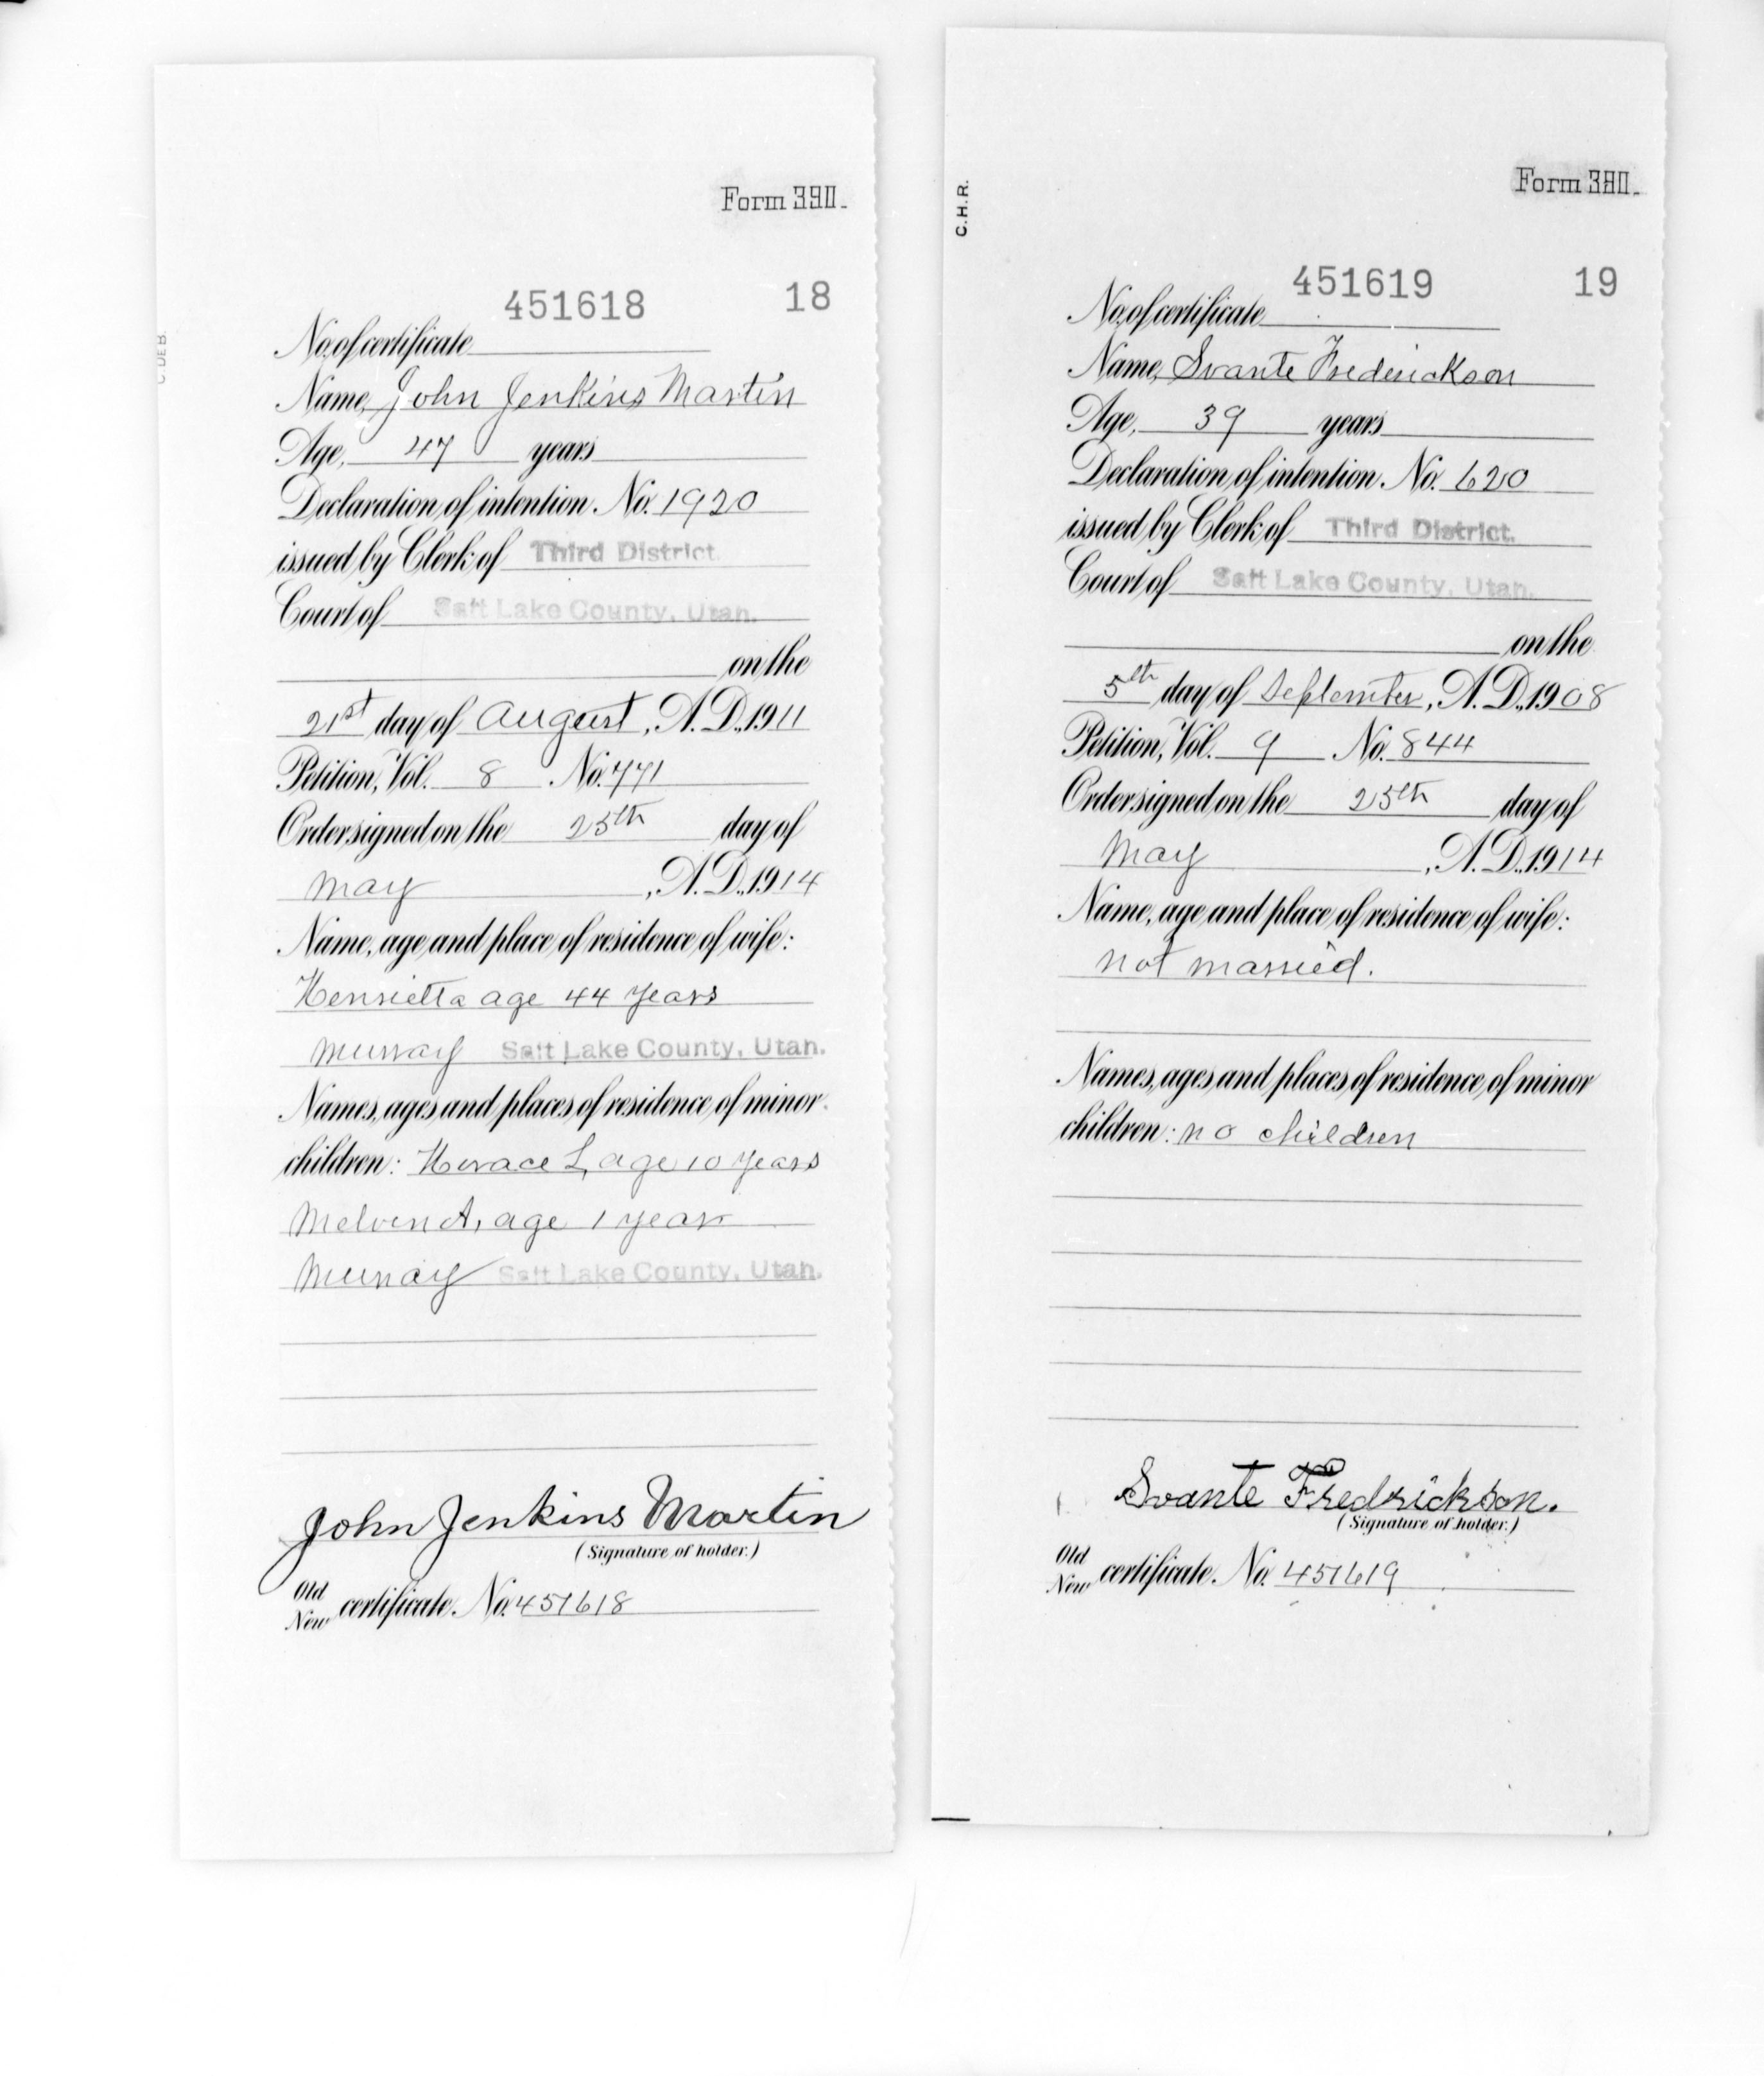 C. DE B.
Form 390.
451618 18
No. of certificate
Name, John Jenkins Martin
Age, 47 years
Declaration of intention. No. 1920
issued by Clerk of Third District.
Court of Salt Lake County, Utah.
on the
21st day of August, A.D., 1911
Petition, Vol. 8 No. 771
Order signed on the 25th day of
May, A.D., 1914
Name, age and place of residence of wife:
Henrietta age 44 years
Murray Salt Lake County, Utah.
Names, ages and places of residence of minor
children: Horace L, age 10 years
Melvin A, age 1 year
Murray Salt Lake County, Utah.
John Jenkins Martin
(Signature of holder.)
Old
New certificate. No. 451618
C.H.R.
Form 390.
451619 19
No. of certificate
Name, Svante Frederickson
Age, 39 years
Declaration of intention. No. 620
issued by Clerk of Third District.
Court of Salt Lake County, Utah.
on the
5th day of September, A.D., 1908
Petition, Vol. 9 No. 844
Order signed on the 25th day of
May, A.D., 1914
Name, age and place of residence of wife:
not married.
Names, ages and places of residence of minor
children: no children
Svante Fredrickson.
(Signature of holder.)
Old
New certificate. No. 451619